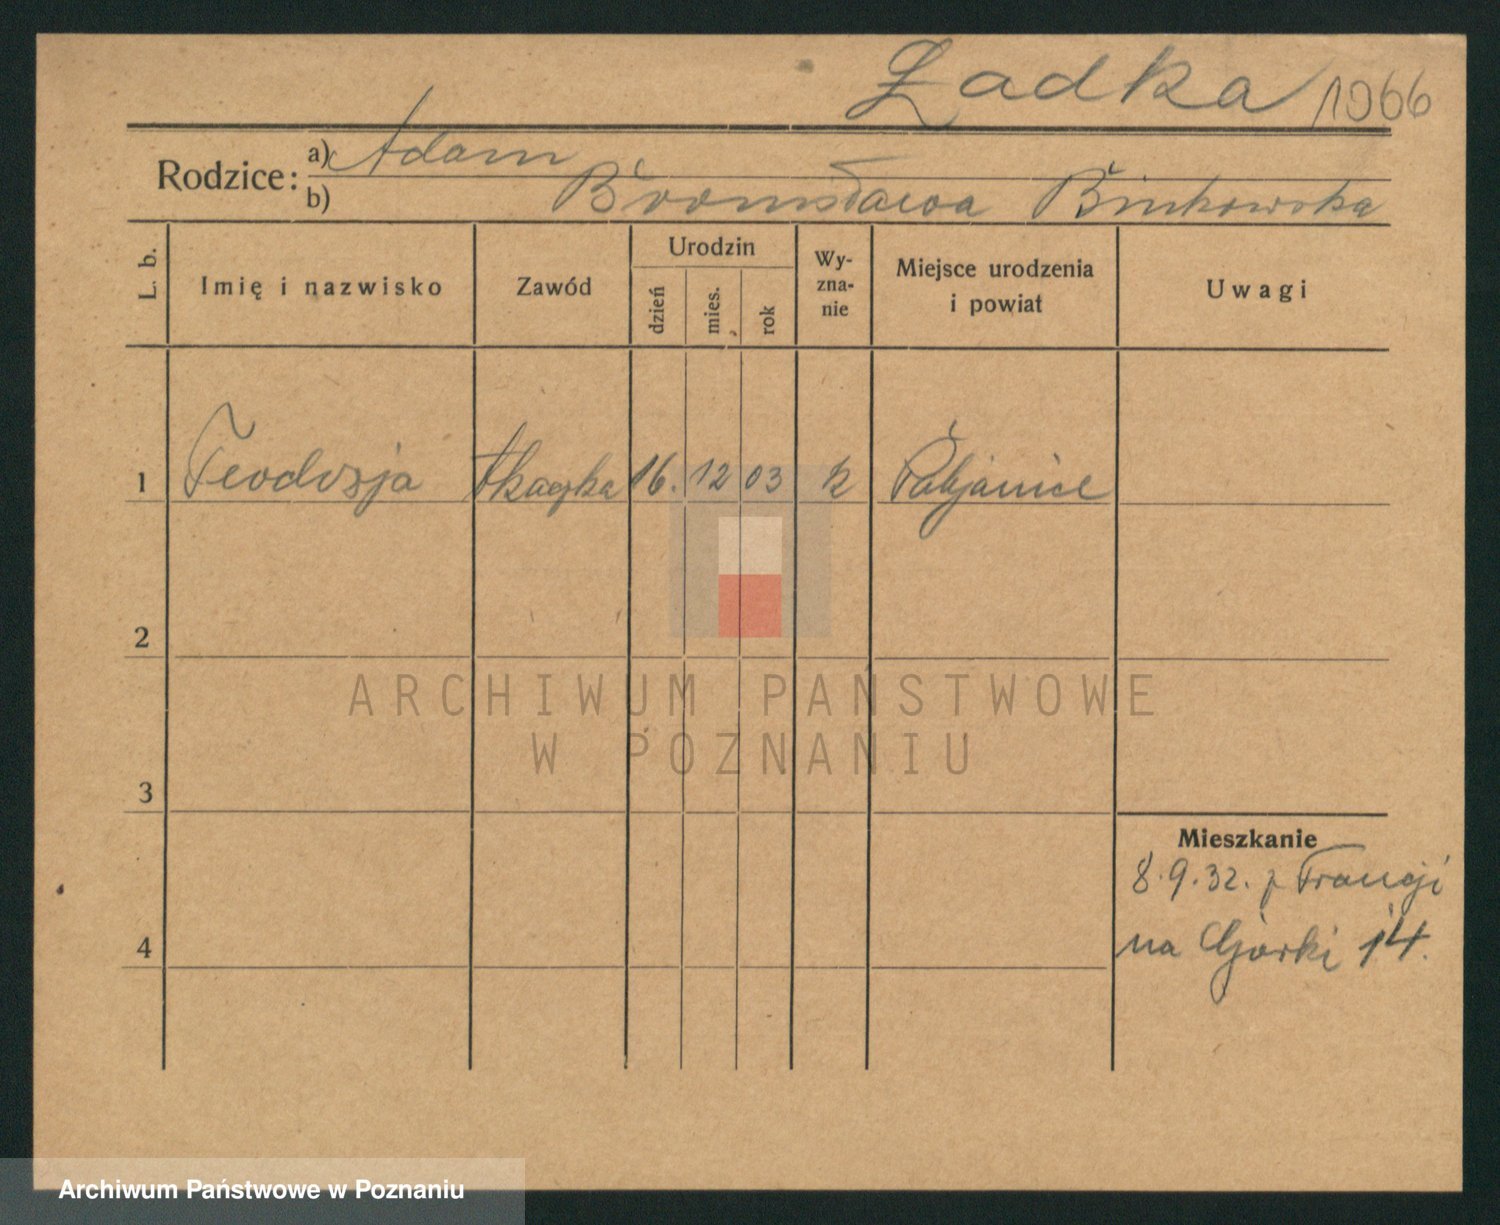 Żadka 1966
Rodzice: a) Adam
b) Bronisława Binkowska
L. b. Imię i nazwisko Zawód Urodzin dzień mies. rok Wy-zna-nie Miejsce urodzenia i powiat Uwagi
1 Teodozja tkaczka 16. 12 03 k Pabjanice
2
ARCHIWUM PAŃSTWOWE
W POZNANIU
3
Mieszkanie
8.9.32. z Francji
4 na Górki 14.
Archiwum Państwowe w Poznaniu